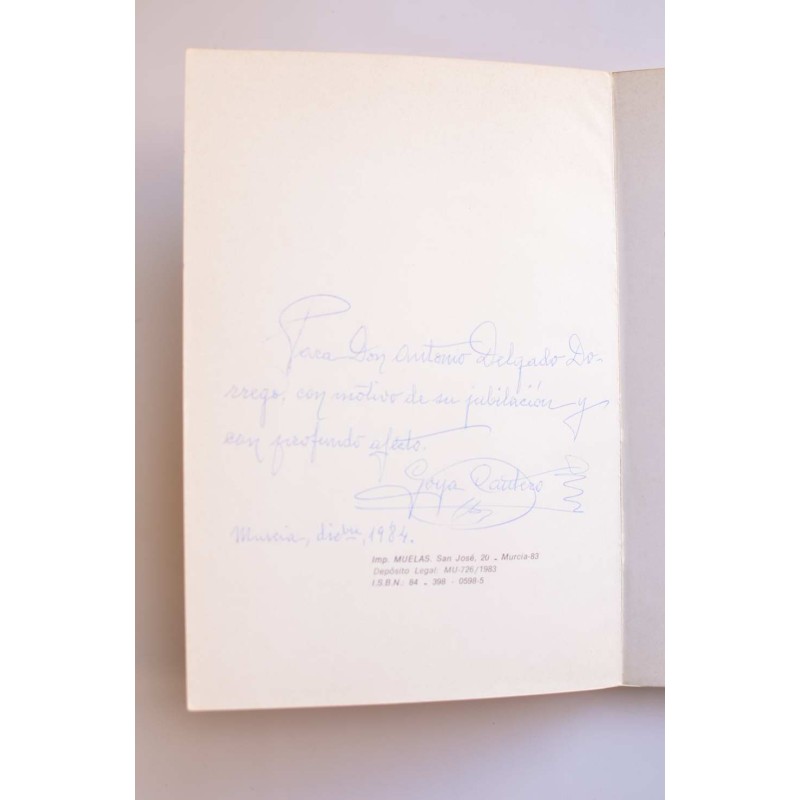 Para Don Antonio Delgado Do-
rrego, con motivo de su jubilación y
con profundo afecto.
Goya Cantero
Murcia, dicbre, 1984.
Imp. MUELAS. San José, 20 - Murcia-83
Depósito Legal: MU-726/1983
I.S.B.N.: 84 - 398 - 0598-5